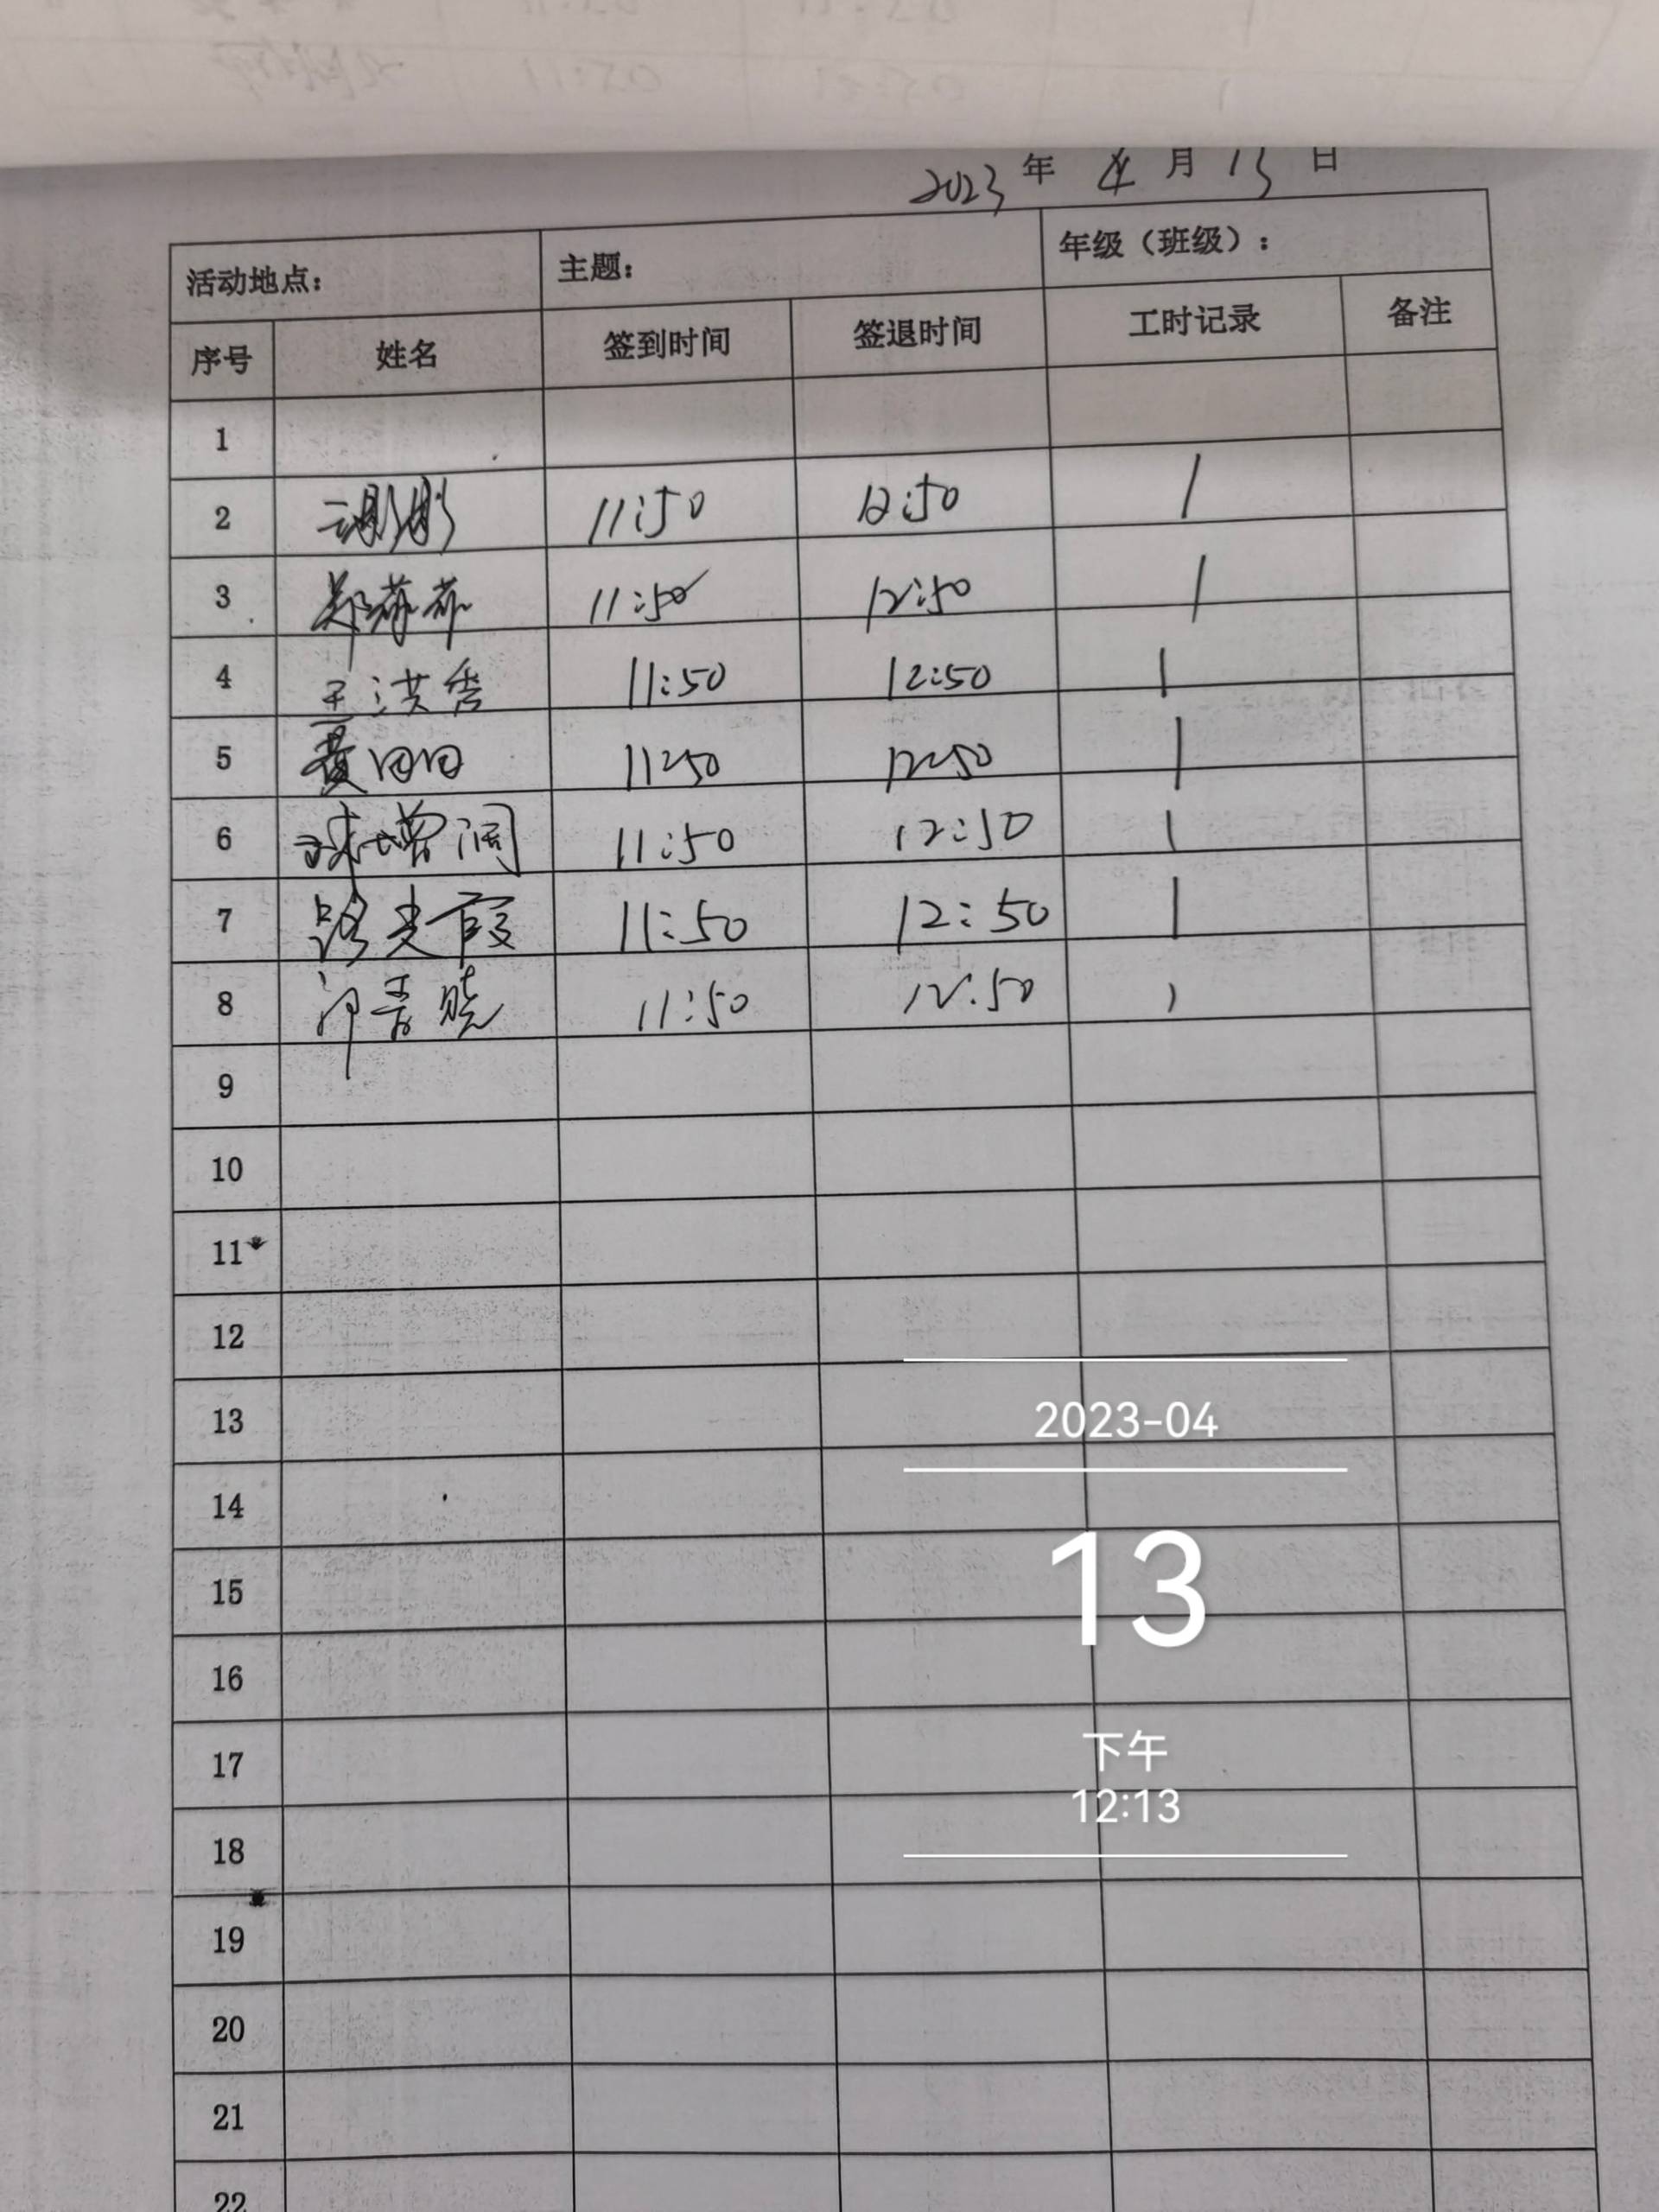 2023年 4月 13日
活动地点： 主题： 年级（班级）：
序号 姓名 签到时间 签退时间 工时记录 备注
1
2 11:50 12:50 1
3 郑 11:50 12:50 1
4 王洪秀 11:50 12:50 1
5 黄田田 11:50 12:50 1
6 增阔 11:50 12:50 1
7 路光霞 11:50 12:50 1
8 晓 11:50 12:50 1
9
10
11
12
13
14
15
16
17
18
19
20
21
22
2023-04
13
下午
12:13